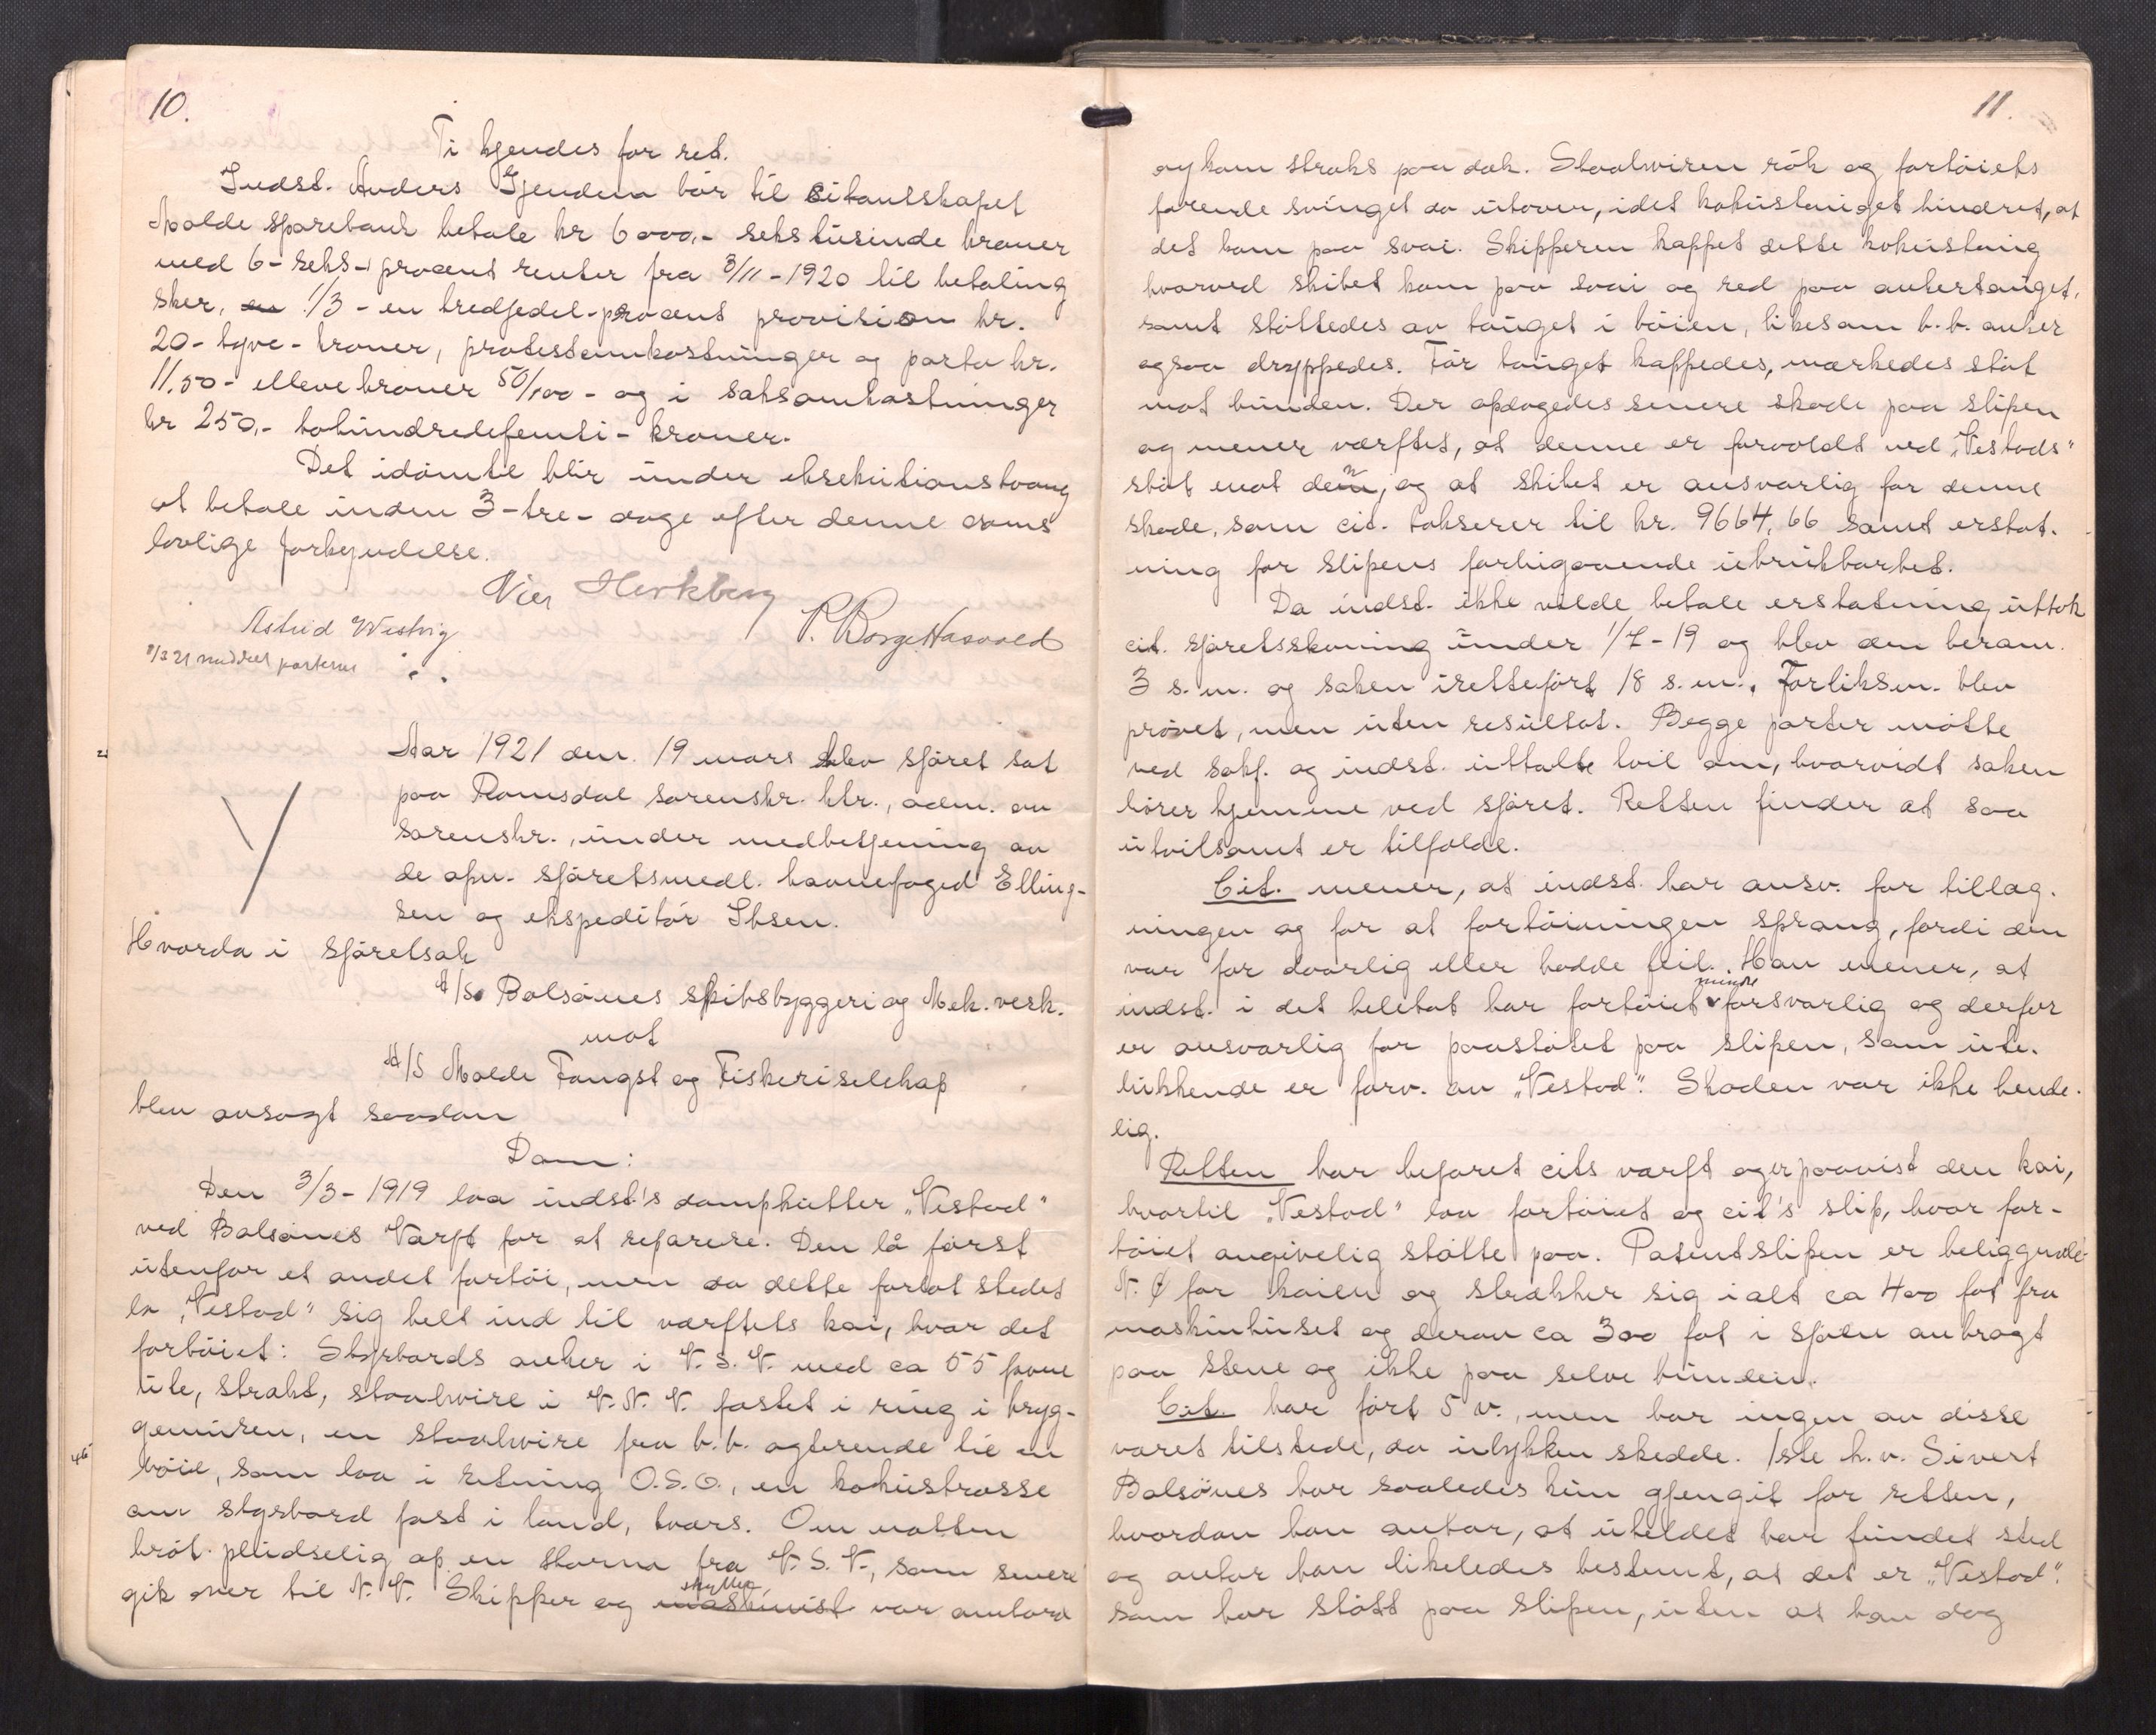 10.
Ti kjendes for ret.
Indst. Anders Gjendem bør til citantskapet
Molde sparebank betale kr 6000,- sekstusinde kroner
med 6-seks- procent renter fra 3/11-1920 til betaling
sker, en 1/3 - en tredjedel-procent provision kr.
20- tyve- kroner, protestomkostninger og porto kr.
11,50- elleve kroner 50/100 - og i saksomkostninger
kr 250,- tohundredefemti- kroner.
Det idømte blir under eksekutionstvang
at betale inden 3-tre- dage efter denne doms
lovlige forkyndelse.
P. Borge Hasvold
Astrid
parterne
Aar 1921 den 19 mars blev sjøret sat
paa Romsdal sorenskr. ktr., adm. av
sorenskr., under medbetjening av
de opn. sjøretsmedl. havnefoged Elling-
sen og ekspeditør Ibsen.
Hvorda i sjøretsak
A/S Bolsønes skibsbyggeri og Mek. verk.
mot
A/S Molde Fangst og Fiskeriselskap
blev avsagt saadan
Dom:
Den 3/3-1919 laa indst's dampkutter „Vestad"
ved Bolsønes Værft for at reparere. Den lå først
utenfor et andet fartøi, men da dette forlot stedet
la „Vestad" sig helt ind til værftets kai, hvor det
fortøiet: Styrbords anker i V. S. V. med ca 55 favne
ute, strakt, staalwire i V. N. V. fæstet i ring i bryg-
gemuren, en staalwire fra b.b. agterende til en
bøie, som laa i retning O.S.O., en kokustrosse
om styrbord fast i land, tvers. Om natten
brøt pludselig op en storm fra V. S. V., som senere
gik over til N. V. Skipper og maskinist var ombord
11.
og kom straks paa dæk. Staalwiren røk og fartøiets
forende svinget da utover, idet kokustauget hindret, at
det kom paa svai. Skipperen kappet dette kokustaug
hvorved skibet kom paa svai og red paa ankertauget,
samt støttedes av tauget i bøien, likesom b.b. anker
ogsaa droppedes. Før tauget kappedes, merkedes støt
mot bunden. Der opdagedes senere skade paa slipen
og mener værftet, at denne er forvoldt ved „Vestads"
støt mot den, og at skibet er ansvarlig for denne
skade, som cit. takserer til kr. 9664,66 samt erstat-
ning for slipens forhigaaende ubrukbarhet.
Da indst. ikke vilde betale erstatning uttok
cit. sjøretsstevning under 1/7-19 og blev den beram.
3 s.m. og saken iretteført 18 s.m., Forliksm. blev
prøvet, men uten resultat. Begge parter møtte
ved sakf. og indst. uttalte tvil om, hvorvidt saken
hører hjemme ved sjøret. Retten finder at saa
utvilsomt er tilfælde.
Cit. mener, at indst. har ansv. for tillæg-
ningen og for at fortøiningen sprang, fordi den
var for daarlig eller hadde feil. Han mener, at
indst. i det heletat har fortøiet mindre forsvarlig og derfor
er ansvarlig for paastøtet paa slipen, som ute-
lukkende er forv. av „Vestad". Skaden var ikke hende-
lig.
Retten har befaret cits værft og er paavist den kai,
hvortil „Vestad" laa fortøiet og cit's slip, hvor far-
tøiet angivelig støtte paa. Patentslipen er beliggende
N. Ø for kaien og strækker sig ialt ca 400 fot fra
maskinhuset og derav ca 300 fot i sjøen anbragt
paa stene og ikke paa selve bunden.
Cit. har ført 5 v., men har ingen av disse
været tilstede, da ulykken skedde. 1ste h.v. Sivert
Bolsønes har saaledes kun gjengit for retten,
hvordan han antar, at uheldet har fundet sted
og antar han likeledes bestemt, at det er „Vestad"
som har støtt paa slipen, uten at han dog